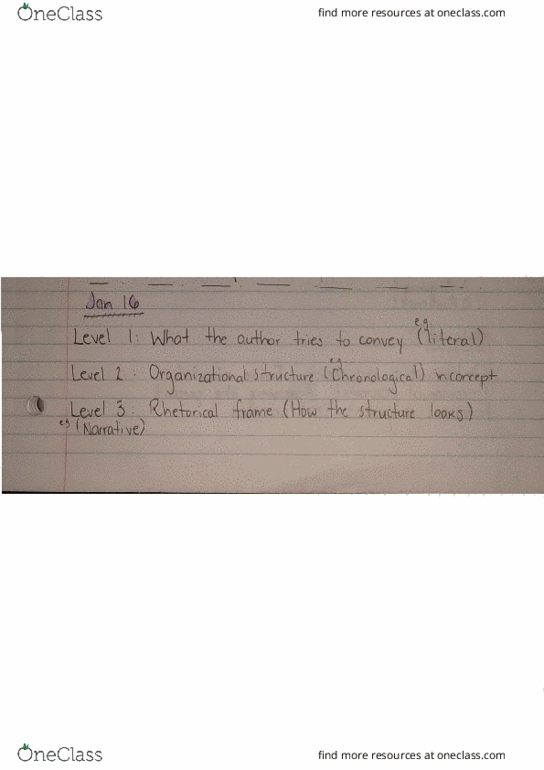 OneClass
find more resources at oneclass.com
Jan 16
Level 1: What the author tries to convey (e.g literal)
Level 2: Organizational structure (eg Chronological) in concept
Level 3: Rhetorical frame (How the structure looks)
eg (Narrative)
OneClass
find more resources at oneclass.com